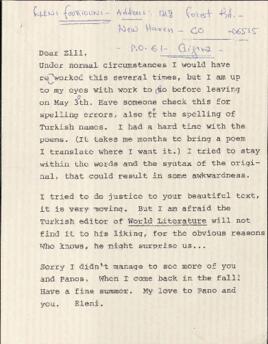 ELENI FOURTOUNI - Address: 1218 Forest Rd. -
New Haven - CO -06515
- P.O. 61 -
Dear Zili.
Under normal circumstances I would have
reworked this several times, but I am up
to my eyes with work to do before leaving
on May 8th. Have someone check this for
spelling errors, also fr the spelling of
Turkish names. I had a hard time with the
poems. (It takes me months to bring a poem
I translate where I want it.) I tried to stay
within the words and the syntax of the origi-
nal, that could result in some awkwardness.
I tried to do justice to your beautiful text,
it is very moving. But I am afraid the
Turkish editor of World Literature will not
find it to his liking, for the obvious reasons
Who knows, he might surprise us...
Sorry I didn't manage to see more of you
and Panos. When I come back in the fall!
Have a fine summer. My love to Pano and
you. Eleni.